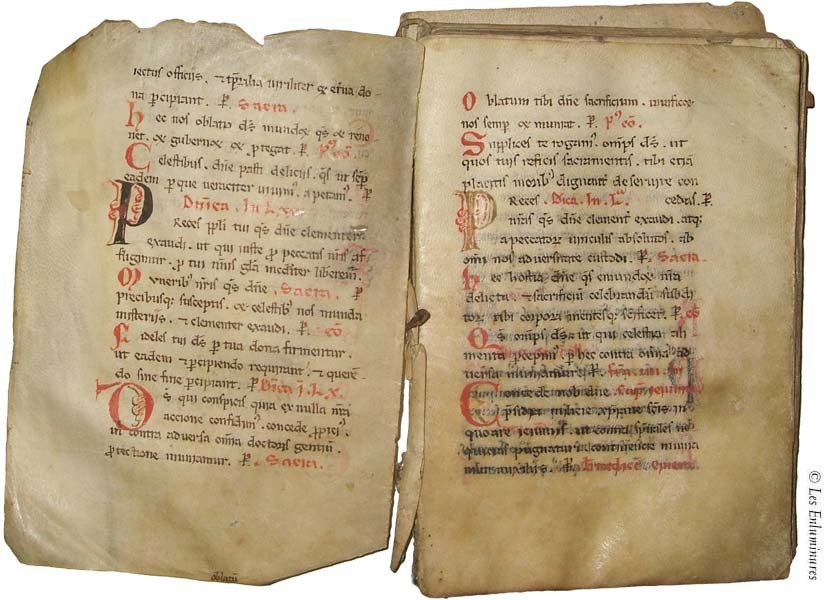 iectus officiis. & tp̄ralia uiriliter & et̄na do
na p̄cipiant. P̄. Sacra.
hec nos oblatio ds̄ mundet q̄s & reno
uet. & gubernet & p̄tegat. P̄. Pꝰ cō.
Celestibus. dn̄e pasti deliciis. q̄s ut semp̄
eadem p̄ que ueraciter uiuimꝰ. appetamꝰ. P̄
Dn̄ica. In. Lxx.
Preces ppl̄i tui q̄s dn̄e clementer
exaudi. ut qui iuste p̄ peccatis nr̄is af
fligimur. p̄ tui nōinis gl̄a mis̄diter liberem̄.
Muneribꝰ nr̄is q̄s dn̄e. Sacra. P̄
precibusq; susceptis. & celestibꝰ nos munda
misteriis. & clementer exaudi. P̄. cō
Fideles tui ds̄ p̄ tua dona firmentur.
ut eadem & p̄cipiendo requirant. & queren
do sine fine p̄cipiant. P̄. Dn̄ica ī. Lx.
Ds̄ qui conspicis quia ex nulla nr̄a
accione confidimꝰ. concede p̄pitiꝰ
ut contra aduersa om̄ia doctoris gentiū.
protectione muniamur. P̄. Sacra.
oblatū
Oblatum tibi dn̄e sacrificium. uiuificet
nos semp̄ & muniat. P̄. Pꝰ cō.
Supplices te rogamꝰ. om̄ps ds̄. ut
quos tuis reficis sacramentis. tibi etiā
placitis moribꝰ dignant̄ deseruire con
Preces. Dn̄ica. In. Lᵃ. cedas. P̄.
nr̄as q̄s dn̄e clement̄ exaudi. atq;
a peccator̄ uinculis absolutos. ab
om̄i nos aduersitate custodi. P̄. Sacra.
hec hostia dn̄e q̄s emundet nr̄a
delicta. & sacrificiū celebrandū subdi
tor̄ tibi corpora mentesq; sc̄ificet. P̄. cō
Qs̄ om̄ps ds̄. ut qui celestia ali
menta p̄cepimꝰ. p̄ hec contra om̄ia ad
uersa muniamur. P̄.
Concede nob̄ dn̄e
p̄sidia militie xp̄iane sc̄is in
quoare ieiuniis. ut contra sp̄uales neq̄
pugnaturi continencie munia
mur auxiliis. P̄.
© Les Enluminures